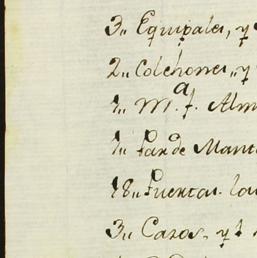 3,, Equipales, y
2,, Colchones,, y
1,, M.ª f. Alm
1,, Par de Mant
18,, Puertas. Con
3,, Cazos,, y 1